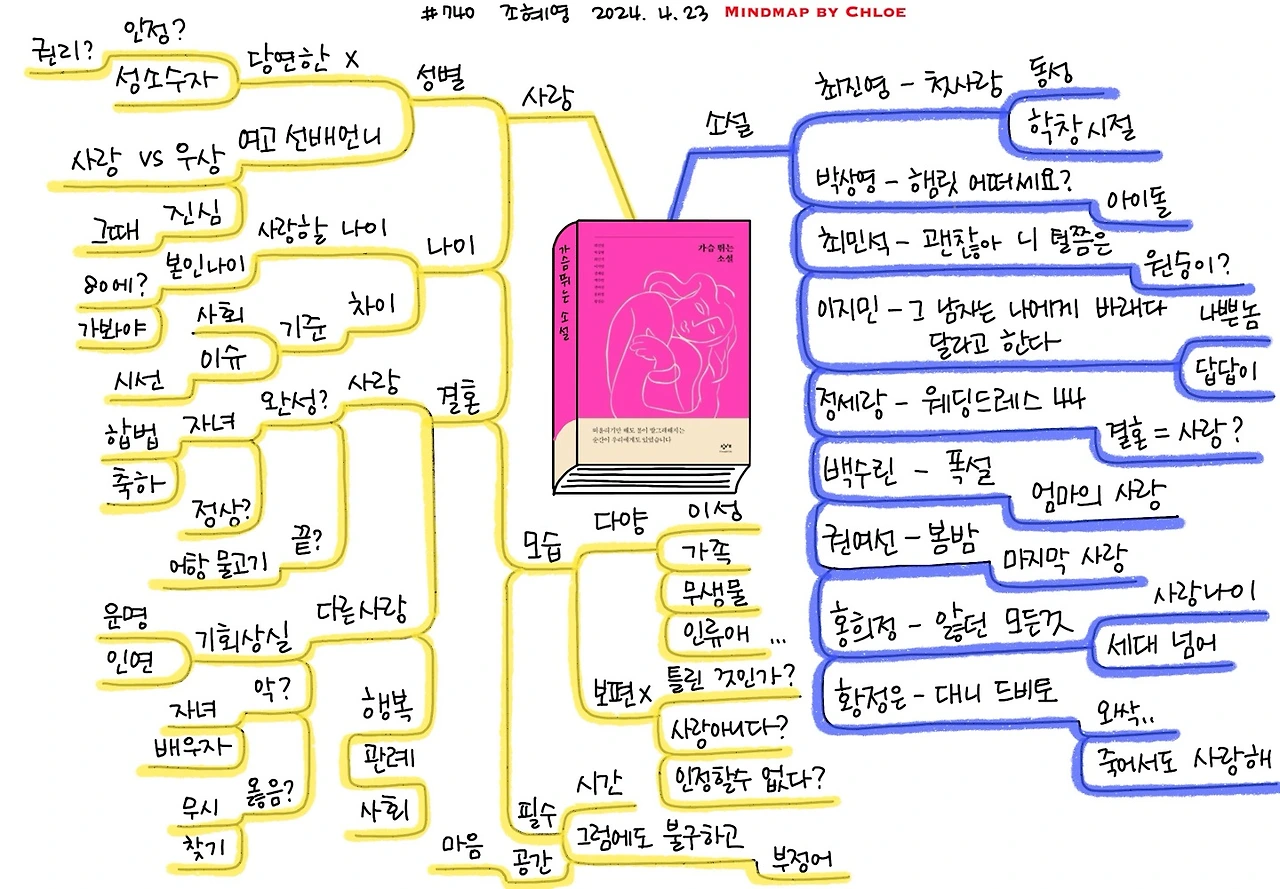 #740 조혜영 2024. 4. 23 MINDMAP BY CHLOE
사랑
성별
당연한 X
인정?
권리?
성소수자
여고 선배언니
사랑 vs 우상
진심
그때
나이
사랑할 나이
본인나이
80에?
가봐야
차이
기준
사회
이슈
시선
결혼
사랑
완성?
자녀
합법
축하
정상?
끝?
어항 물고기
다른사랑
기회상실
운명
인연
악?
자녀
배우자
옳음?
무시
찾기
행복
관례
사회
모습
다양
이성
가족
무생물
인류애 ...
보편X
틀린 것인가?
사랑아니다?
인정할수 없다?
필수
시간
그럼에도 불구하고
부정어
공간
마음
가슴 뛰는 소설
가슴 뛰는
소설
떠올리기만 해도 볼이 발그레해지는
순간이 우리에게도 있었습니다
소설
최진영 - 첫사랑
동성
학창시절
박상영 - 햄릿 어떠세요?
아이돌
최민석 - 괜찮아 니 털쯤은
원숭이?
이지민 - 그 남자는 나에게 바래다
달라고 한다
나쁜놈
답답이
정세랑 - 웨딩드레스 44
결혼 = 사랑?
백수린 - 폭설
엄마의 사랑
권여선 - 봄밤
마지막 사랑
홍희정 - 앓던 모든것
사랑나이
세대 넘어
황정은 - 대니 드비토
오싹..
죽어서도 사랑해